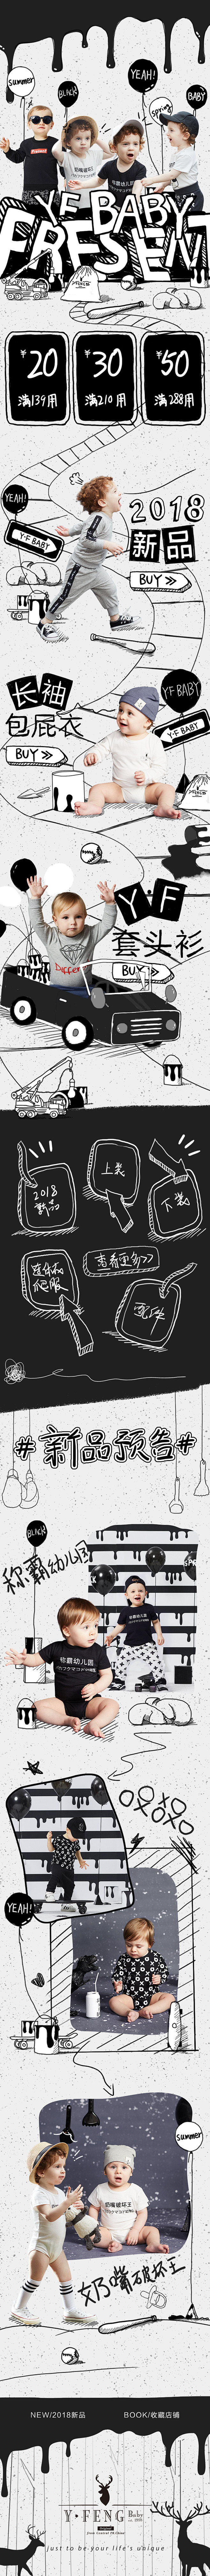 Summer
BLACK
YEAH!
BABY
Spring
奶嘴破坏王
称霸幼儿园
YF BABY
PRESENT
¥20
¥30
¥50
满139用
满210用
满288用
YEAH!
Y·F BABY
2018
新品
BUY >>
长袖
包屁衣
BUY >>
Y·F BABY
Y·F BABY
Y·F
套头衫
Differ
BUY >>
2018
新品
上装
下装
连体衣
爬服
查看更多>>
配件
#新品预告#
BLACK
称霸幼儿园
称霸幼儿园
YEAH!
Summer
奶嘴破坏王
奶嘴破坏王
NEW/2018新品
BOOK/收藏店铺
Y·FENG Baby
just to be your life's unique